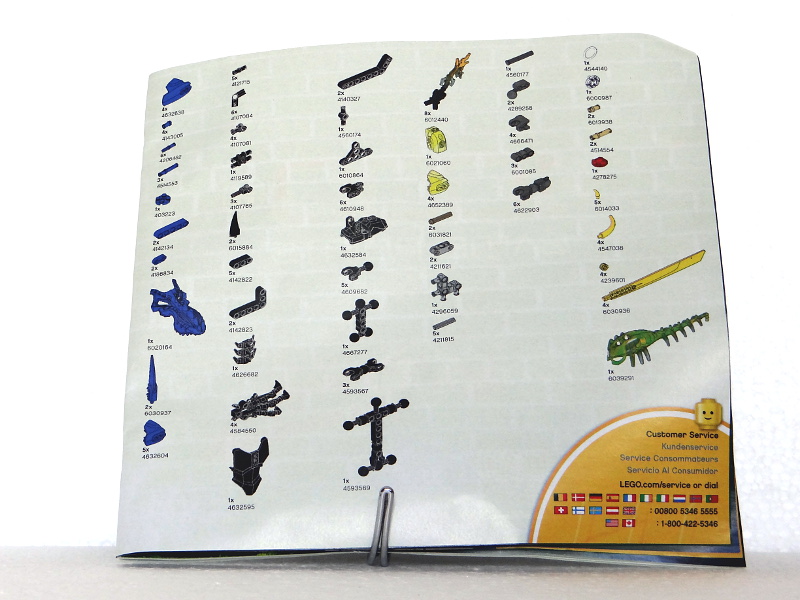 4x
4632638
4x
4143005
4x
4206482
3x
4514553
1x
403223
2x
4142134
2x
4186834
1x
6020164
2x
6030937
5x
4632604
5x
4121715
6x
4107084
4x
4107081
1x
4119589
3x
4107765
2x
6015884
5x
4142822
2x
4142823
1x
4626682
4x
4584660
1x
4632595
2x
4140327
1x
4560174
1x
6010864
6x
4610948
1x
4632584
5x
4609692
1x
4667277
3x
4593567
1x
4593569
8x
6012440
1x
6021060
4x
4652389
2x
6031821
2x
4211621
1x
4296059
5x
4211815
1x
4560177
2x
4289258
4x
4666471
3x
6001085
6x
4622903
1x
4544140
1x
6000987
2x
6013938
2x
4514554
1x
4278275
5x
6014033
4x
4547038
4x
4239601
4x
6030936
1x
6039291
Customer Service
Kundenservice
Service Consommateurs
Servicio Al Consumidor
LEGO.com/service or dial
: 00800 5346 5555
: 1-800-422-5346